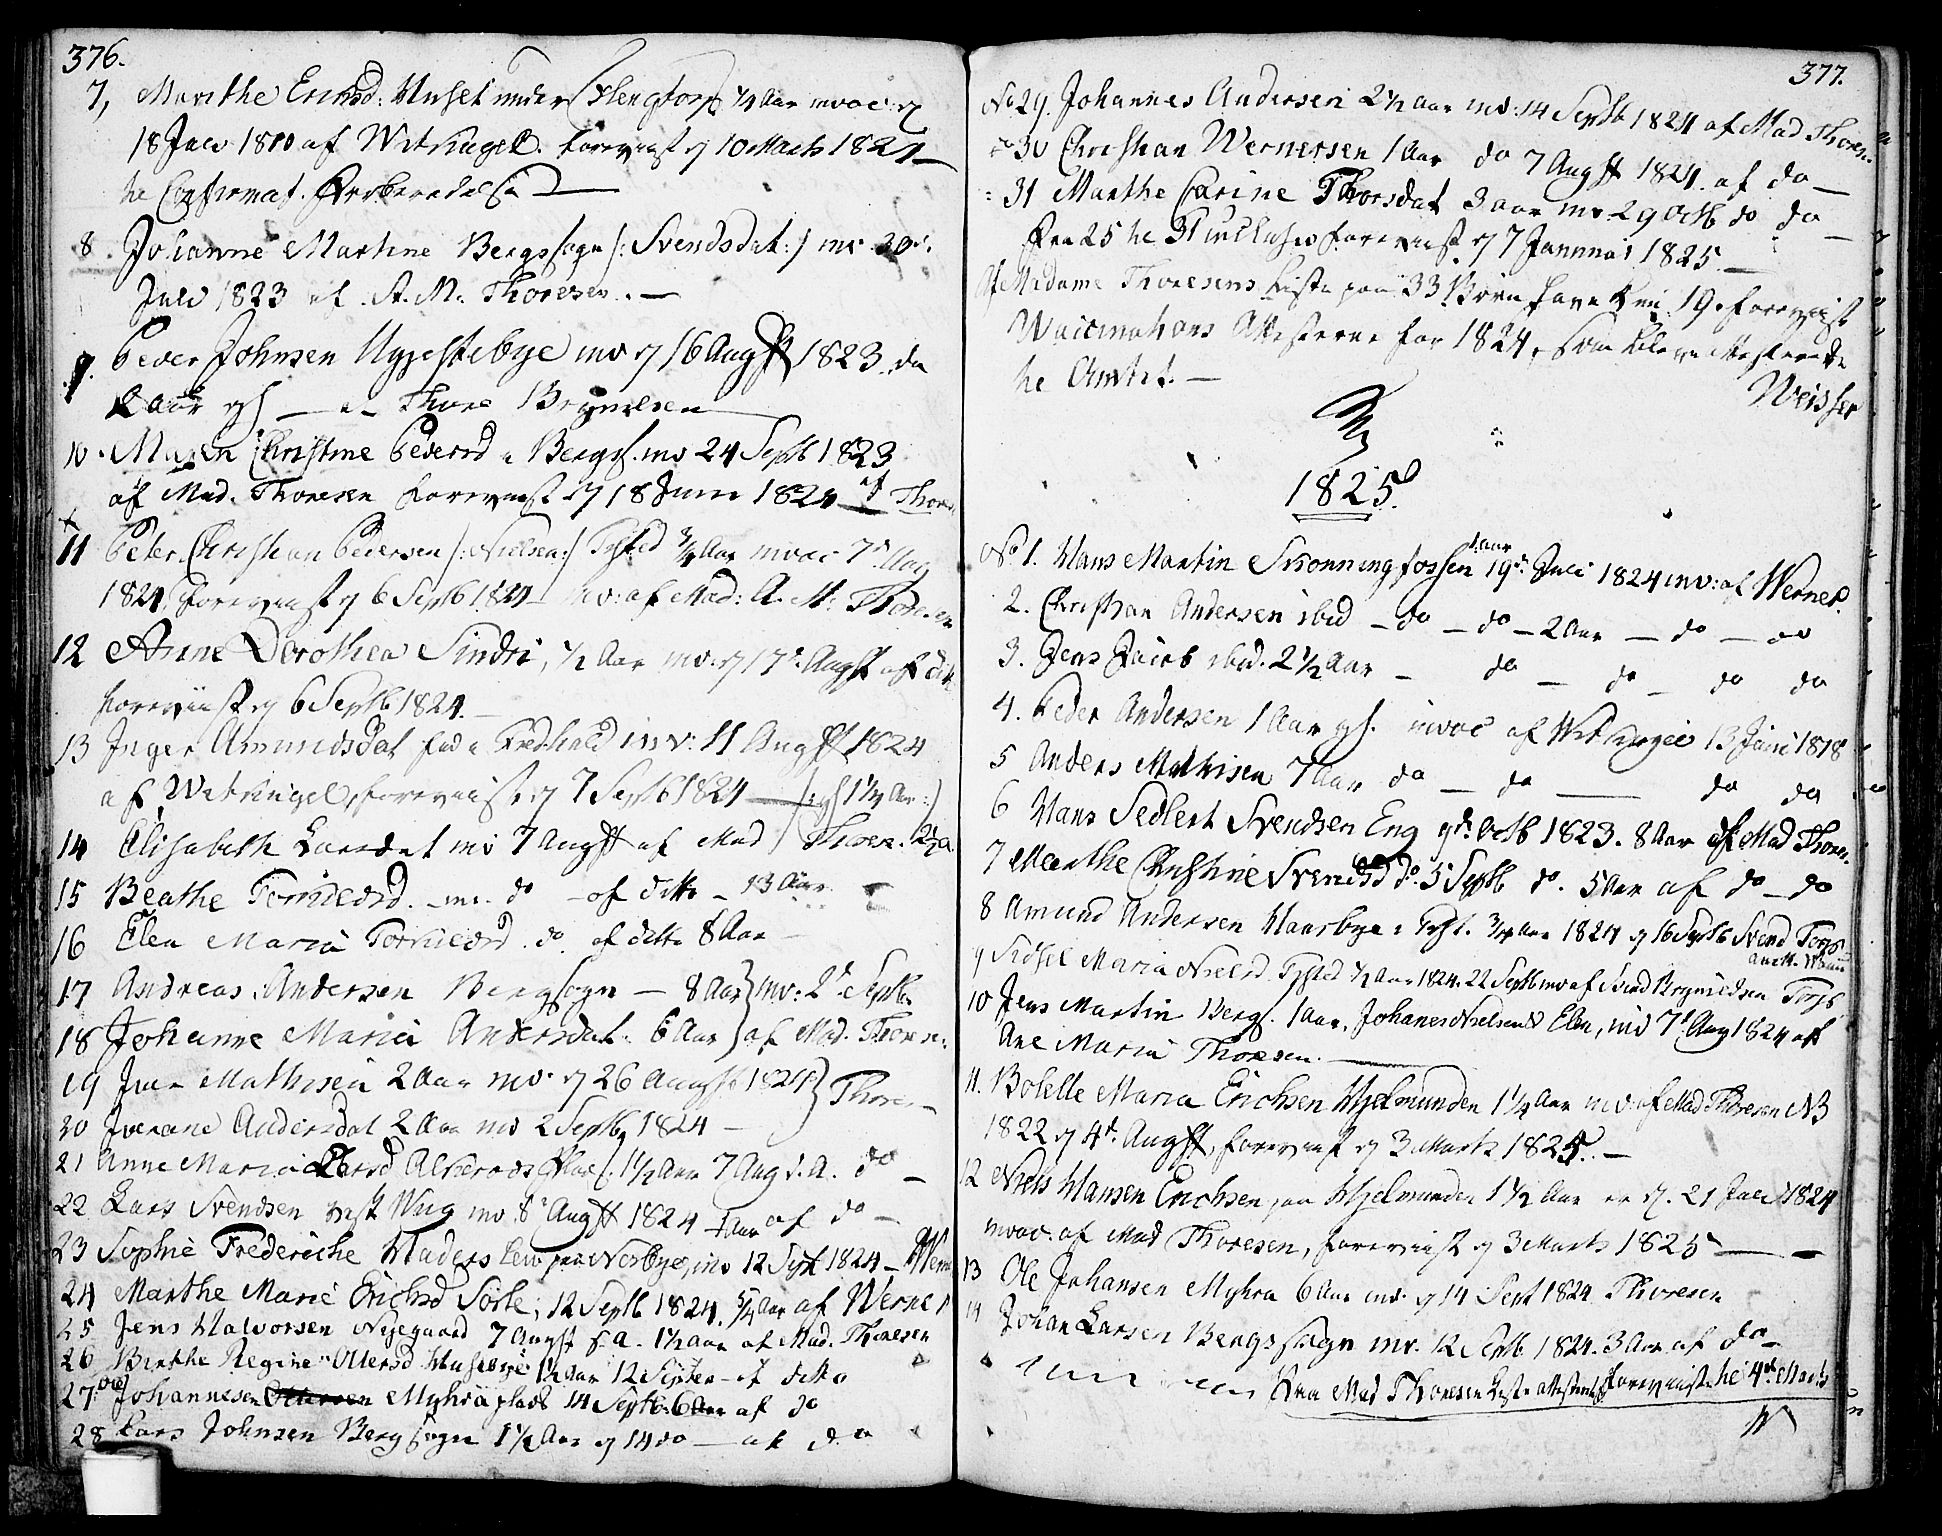 376.
7, Marithe Ericksd: Huset under 1/4 Aar
18 Juli 1810 af Witkugel. forevist d 10 Marts 1824
Confirmat. Forberedelse
8. Johanne Martine Bergs sogn /: Svendsdat :/ inv. 20d.
Juli 1823 af A. M. Thoresen. —
9. Peder Johnsen Uggestebye inv d 16 Augst 1823. da
2 Aar gl — Thore Brynelsen
10. Maren Christine Pedersd Bergs. inv 24 Septb 1823
af Mad. Thoresen forevist d 18 Juni 1824 af Thor
11 Peter Christian Pedersen /: Nielsen :/ Tisted 3/4 Aar invac 7d. Aug
1824, forevist d 6 Septb 1824 inv: af Mad: A. M. Thoresen
12 Anne Dorothea Sindri, 1/2 Aar inv. d 17d. Augst af dito
forevist d 6 Septb 1824. —
13 Inger Amundsdat Fredhald inv: 11 Augst 1824
af Witkugel, forevist d 7 Septb 1824 — /: gl 1 1/4 Aar :/
14 Elisabeth Larsdat inv 7 Augst af Mad Thores. 2 1/2 a
15 Beathe Torkildsd. inv. do — af ditto — 13 Aar
16 Elen Maria Torkildsd. do. af ditto 8 Aar —
17 Andreas Andersen Bergsogn — 8 Aar } inv: 2d Septb.
18 Johanne Maria Andersdat. 6 Aar } af Mad. Thoresen.
19 Iver Mathisen 2 Aar inv. d 26 Augst 1824 } Thores —
20 Iverane Andersdat 2 Aar inv 2 Septb 1824 —
21 Anne Maria Larsd 1 1/2 Aar 7 Aug s. A. do —
22 Lars Svendsen inv. 8d Augst 1824 1 Aar af do —
23 Sophie Frederiche paa Norbye, inv 12 Sept 1824 — Werne
24 Marthe Marie Erichsd Sörle, 12 Septb 1824, 5/4 Aar af Werner
25 Jens Halvorsen Nygaard 7 Augst s. a. 1 1/2 Aar af Mad. Thoresen
26 Birthe Regine Ottersd Husebye 1 1/2 Aar 12 Septer — af ditto
27. Ole Johannesen Ottersen Myhra plads 14 Septb. 6 Aar af do
28 Lars Johnsen Berg sogn 1 1/2 Aar d 14 do — af do
377.
No 29. Johannes Andersen 2 1/2 Aar inv: 14 Septb 1824 af Mad Thores.
do 30 Christian Wernersen 1 Aar do 7 Augst 1824. af do —
31 Marthe Carine Thorsdat 3 aar inv 29 Octb do do —
Fra 25 til 31 inclusiv forevist d 7 Januar 1825. —
Af Madame Thoresens Liste paa 33 Börn have kun 19 forevist
Vaccinations Attesterne for 1824, som bleve attesterede
til Amtet. —
Weisser
1825.
No 1. Hans Martin Skonningfossen 1 aar 19d. Juli 1824 inv: af Werner.
2. Christian Andersen ibid — do — do — 2 Aar — do — do
3. Jens Jacob ibid. 2 1/2 Aar — do — do — do do
4. Peder Andersen 1 Aar gl. invac af Witkugel 13 Juni 1818
5 Anders Mathisen 7 Aar do — do — do do
6 Hans Sedlert Svendsen Eng 9d. Octb 1823. 8 Aar af Mad Thores.
7 Marthe Christine Svendsd do. 5 Septb do. 5 Aar af do — do
8 Amund Andersen Haarbye Tist. 3/4 Aar 1824 d 16 Septb Svend Torp
9 Sidsel Maria Nielsd Tisted 1/2 Aar 1824. 22 Septb inv af Svend Brynildsen Torp
10 Jens Martin Bergs. 1 Aar, Johanes Nielsen & Elen, inv 7d Aug 1824 af
Ane Maria Thoresen. —
11. Bolette Maria Erichsen Hjelmunden 1 1/4 Aar inv: af Mad Thoresen NB
1822 d 4d. Augst, forevist d 3 Marts 1825. —
12 Niels Hansen Erichsen paa Hjelmunden 1 1/2 Aar er d. 21 Juli 1824
invac. af Mad Thoresen, forevist d 3 Marts 1825 —
13 Ole Johansen Myhra 6 Aar inv. d 14 Sept 1824 Thoresen
14 Johan Larsen Bergs sogn inv. 12 Septb 1824. 3 Aar af do —
Fra Mad Thoresen Liste forevist til 4d Marts
W